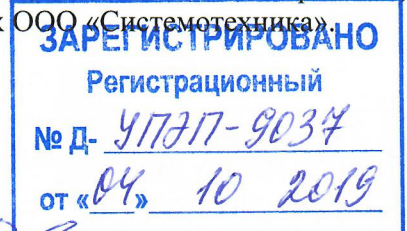 к ООО «Системотехника».
ЗАРЕГИСТРИРОВАНО
Регистрационный
№ Д- УПЭП-9037
от «04» 10 2019